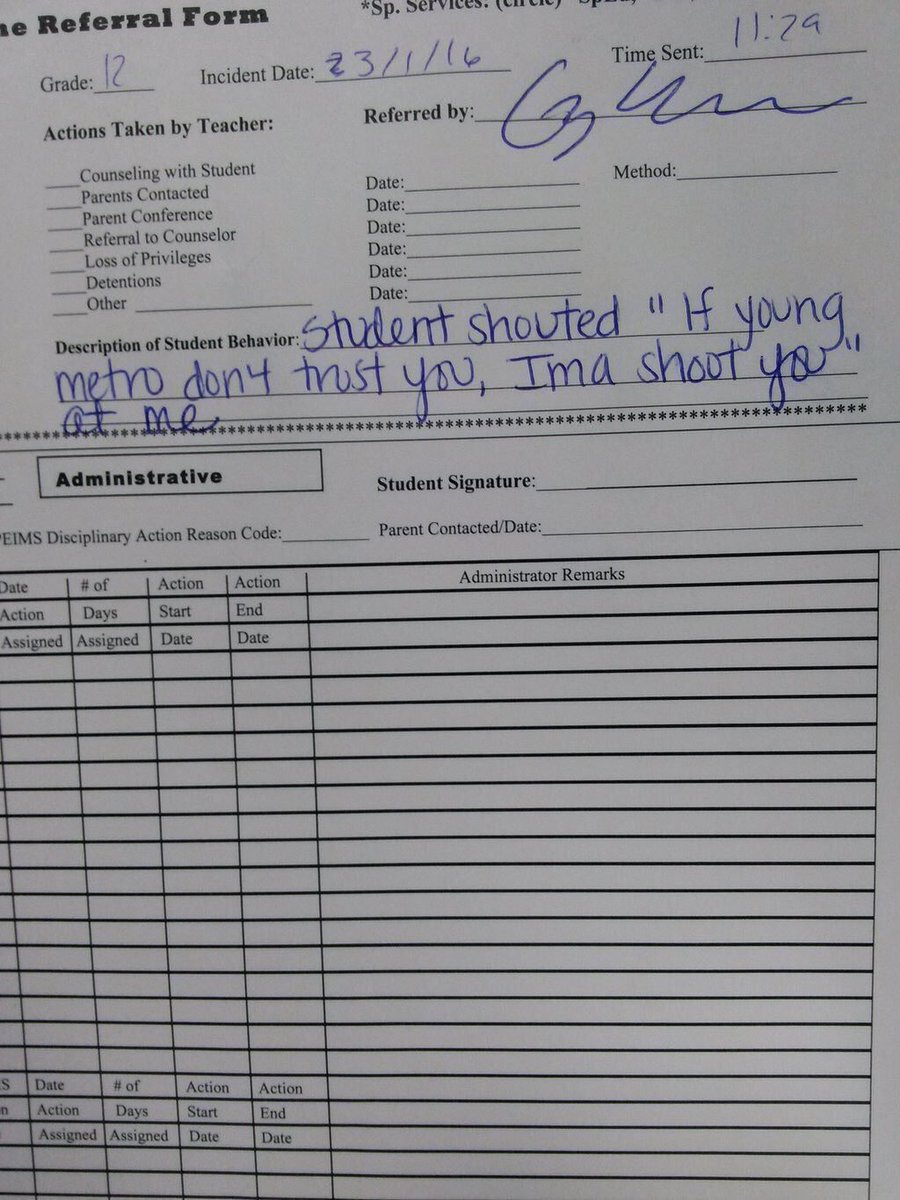 ne Referral Form
*Sp. Services: (circle) SpEd,
Grade: 12 Incident Date: 23/1/16 Time Sent: 11:29
Actions Taken by Teacher: Referred by:
Counseling with Student Date: Method:
Parents Contacted Date:
Parent Conference Date:
Referral to Counselor Date:
Loss of Privileges Date:
Detentions Date:
Other
Description of Student Behavior: Student shouted "If young
metro don't trust you, Ima shoot you"
at me
Administrative Student Signature:
PEIMS Disciplinary Action Reason Code: Parent Contacted/Date:
Date # of Action Action Administrator Remarks
Action Days Start End
Assigned Assigned Date Date
S Date # of Action Action
n Action Days Start End
Assigned Assigned Date Date